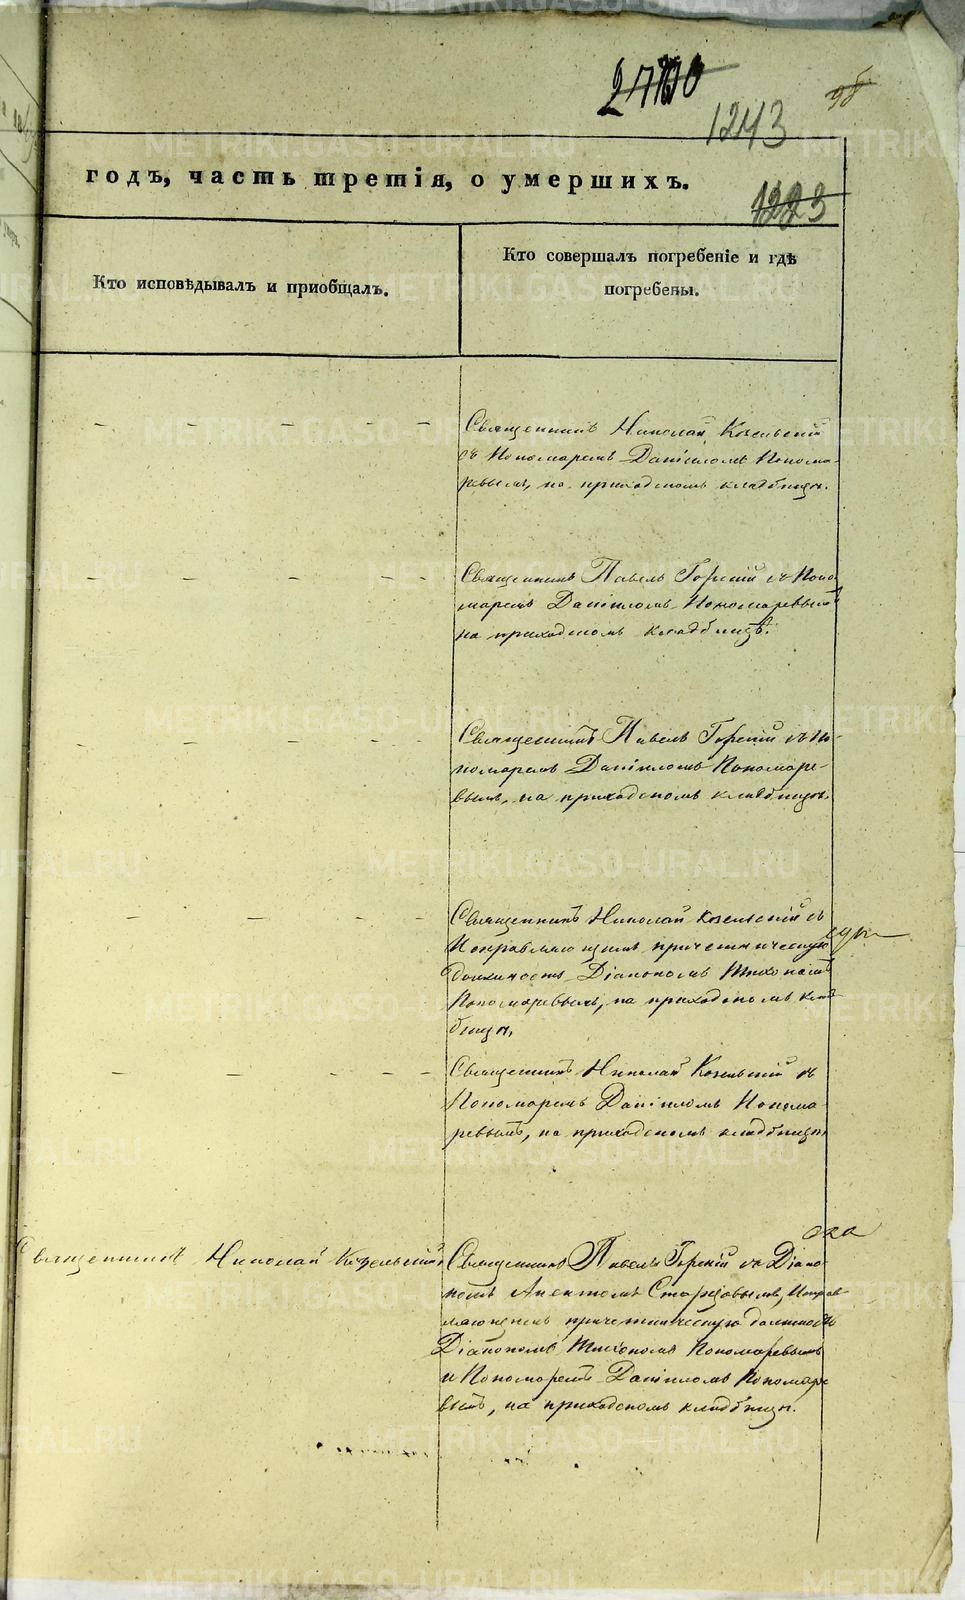 1243
годъ, часть третія, о умершихъ.
1223
Кто исповѣдывалъ и приобщалъ.
Кто совершалъ погребеніе и гдѣ
погребены.
Священникъ Николай Козельскій
съ Пономаремъ Даніиломъ Понома-
ревымъ, на приходскомъ кладбищѣ.
Священникъ Павелъ Горскій съ Поно
маремъ Даніиломъ Пономаревымъ
на приходскомъ кладбищѣ.
Священникъ Павелъ Горскій съ По-
номаремъ Даніиломъ Пономаре-
вымъ, на приходскомъ кладбищѣ.
Священникъ Николай Козельскій съ
Исправляющимъ причетническую
должность Діакономъ Тихономъ
Пономаревымъ, на приходскомъ клад-
бищѣ.
Священникъ Николай Козельскій съ
Пономаремъ Даніиломъ Понома-
ревымъ, на приходскомъ кладбищѣ
Священникъ Николай Козельскій
Священникъ Павелъ Горскій съ Діако-
номъ Старцовымъ, Исправ-
ляющимъ причетническую должность
Діакономъ Тихономъ Пономаревымъ
и Пономаремъ Даніиломъ Пономаре
вымъ, на приходскомъ кладбищѣ.
METRIKI.GASO-URAL.RU